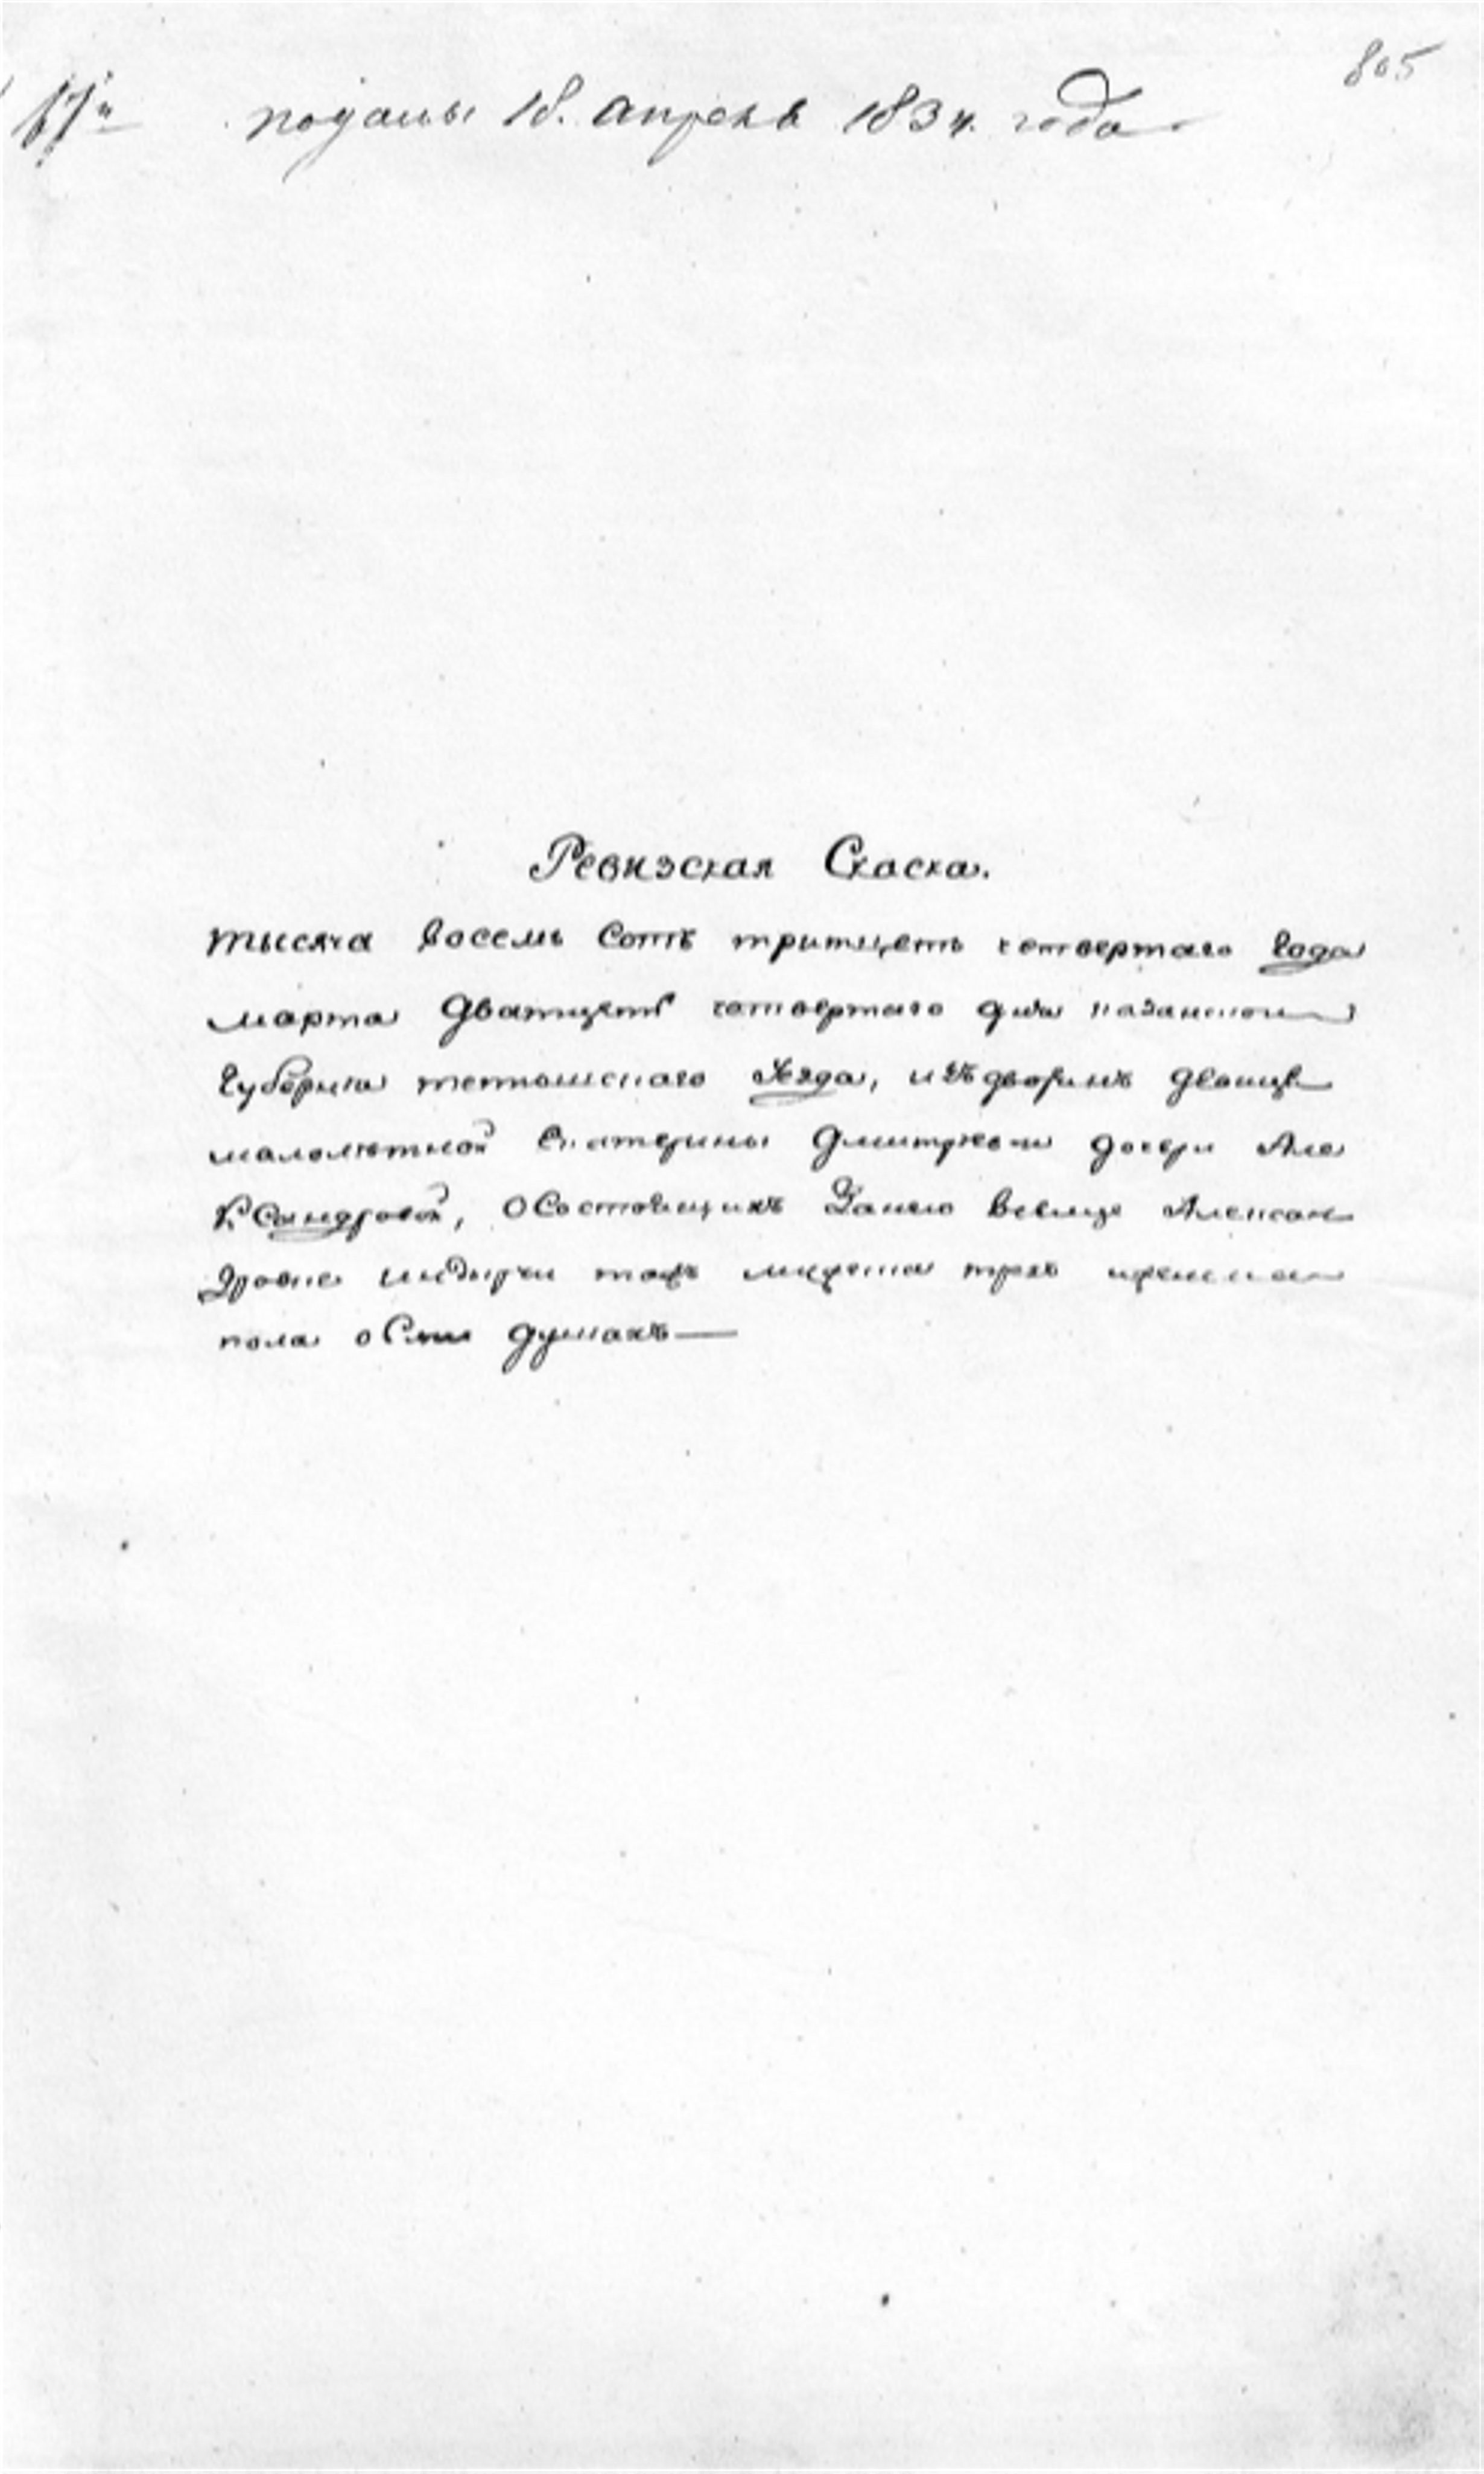 805
поданы 18. апреля 1834. года
Ревизская Скаска.
тысяча восемь сотъ тритцеть четвертаго года
марта дватцеть четвертаго дня казанской
губернии тетюшскаго уезда, изъ дворянъ девицы
малолетной Екатерины Дмитревой дочери Але
ксандровой, о состоящихъ За нею в селце Алексан
дровке мужеска трехъ женска
пола о Сми душахъ—